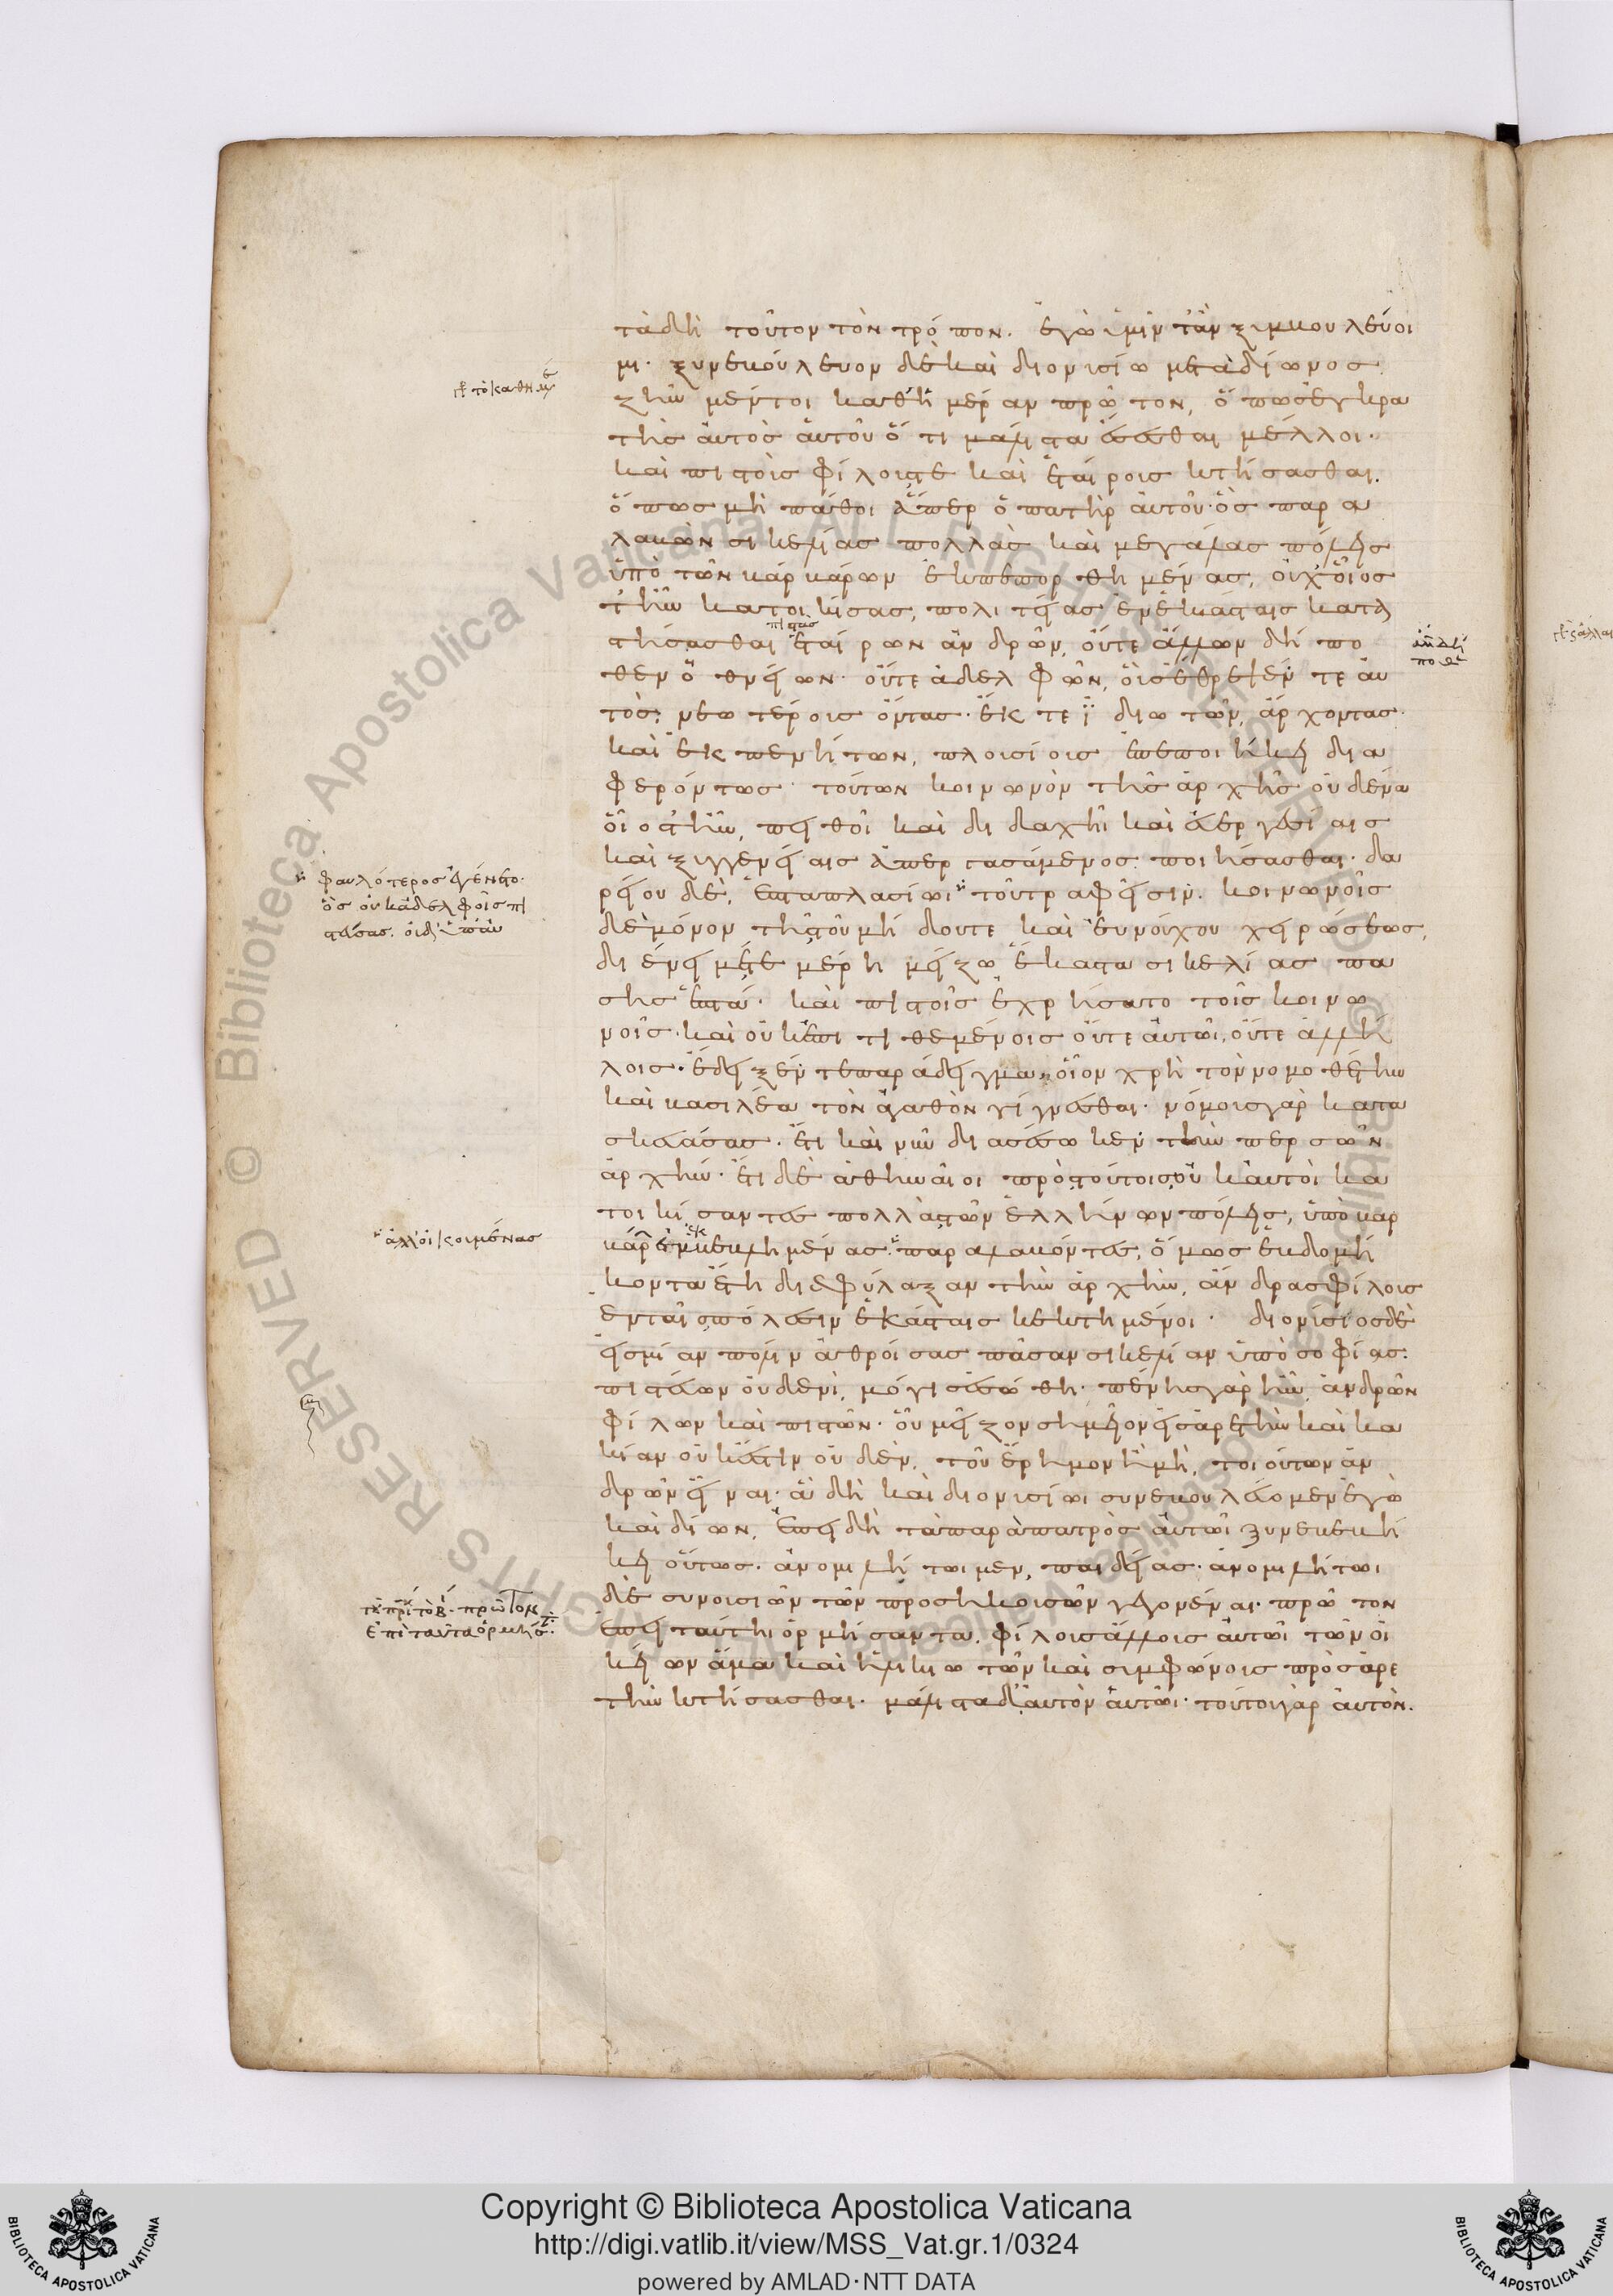 τὰ δὴ τοῦτον τὸν τρόπον. ἐγὼ ὑμῖν τ' ἂν ξυμβουλεύοι
μι. ξυνεβούλευον δὲ καὶ διονυσίω μετὰ δίωνος
ζῆν μέντοι καθ' ἡμέραν πρῶτον, ὅπως ἐγκρα
τὴς αὐτὸς αὑτοῦ ὅ τι μάλιστα ἔσεσθαι μέλλοι.
καὶ πιστοὺς φίλους τε καὶ ἑταίρους κτήσασθαι.
ὅπως μὴ πάθοι ἅπερ ὁ πατὴρ αὐτοῦ. ὃς παρα
λαβὼν σικελίας πολλὰς καὶ μεγάλας πόλεις
ὑπὸ τῶν βαρβάρων ἐκπεπορθημένας, οὐχ οἷός
τ' ἦν κατοικίσας, πολιτείας ἐν ἑκάσταις κατα
στήσασθαι ἑταίρων ἀνδρῶν, οὔτε ἄλλων δή πο
θεν ὀθνείων. οὔτε ἀδελφῶν, οὓς ἔθρεψέν τε αὐ
τὸς νεωτέρους ὄντας. ἔκ τε ἰδιωτῶν, ἄρχοντας.
καὶ ἐκ πενήτων, πλουσίους ἐπεποιήκει δια
φερόντως. τούτων κοινωνὸν τῆς ἀρχῆς οὐδένα
οἷός τ' ἦν, πειθοῖ καὶ διδαχῆι καὶ εὐεργεσίαις
καὶ ξυγγενείαις ἀπεργασάμενος ποιήσασθαι. δα
ρείου δὲ, ἑπταπλασίωι τοῦτρα φαύλισιν. κοινωνοῖς
δὲ μόνον τῆς τοῦ μήδου τε καὶ εὐνούχου χειρώσεως,
διένειμέ τε μέρη μείζω ἕκαστα σικελίας πά
σης ἑπτά. καὶ πιστοῖς ἐχρήσατο τοῖς κοινω
νοῖς. καὶ οὐκ ἐπιτιθεμένοις οὔτε αὐτῶι, οὔτε ἀλλή
λοις. ἔδειξέν τε παράδειγμα, οἷον χρὴ τὸν νομοθέτην
καὶ βασιλέα τὸν ἀγαθὸν γίγνεσθαι. νόμους γὰρ κατα
σκευάσας. ἔτι καὶ νῦν διασέσωκεν τὴν περσῶν
ἀρχήν. ἔτι δὲ ἀθηναῖοι πρὸς τούτοις, οὐκ αὐτοὶ κα
τοικίσαντες πολλὰς τῶν ἑλλήνων πόλεις, ὑπὸ βαρ
βάρων ἐμβεβλημένας. παραλαβόντες, ὅμως ἑβδομή
κοντα ἔτη διεφύλαξαν τὴν ἀρχὴν, ἄνδρας φίλους
ἐν ταῖς πόλεσιν ἑκάσταις κεκτημένοι. διονύσιος δὲ
εἰς μίαν πόλιν ἀθροίσας πᾶσαν σικελίαν ὑπὸ σοφίας.
πιστεύων οὐδενὶ, μόγις ἐσώθη. πένης γὰρ ἦν ἀνδρῶν
φίλων καὶ πιστῶν. οὗ μεῖζον σημεῖον εἰς ἀρετὴν καὶ κα
κίαν οὐκ ἔστιν οὐδέν, τοῦ ἔρημον ἢ μὴ, τοιούτων ἀν
δρῶν εἶναι. ἃ δὴ καὶ διονυσίωι συνεβουλεύομεν ἐγὼ
καὶ δίων, ἐπειδὴ τὰ παρὰ πατρὸς αὐτῶι ξυνεβεβή
κει οὕτως. ἀνομιλήτωι μὲν, παιδείας. ἀνομιλήτωι
δὲ συνουσιῶν τῶν προσηκουσῶν γεγονέναι. πρῶτον
ἐπεὶ ταύτηι ὁρμήσαντα, φίλους ἄλλους αὐτῶι τῶν οἰ
κείων ἅμα καὶ ἡλικιωτῶν καὶ συμφώνους πρὸς ἀρε
τὴν κτήσασθαι. μάλιστα δ' αὐτὸν αὑτῶι. τούτου γὰρ αὐτὸν.
γρ τὸ καθημέ
πιστὰς
φαυλότερος ἐγένετο.
ὃς οὐκ ἀδελφοῖς πι
στεύσας. οὐδ' ὑπ' αὐ
ἀλλ' οἰκουμένας
ἔπειτα ταῦτα ὁρμησ